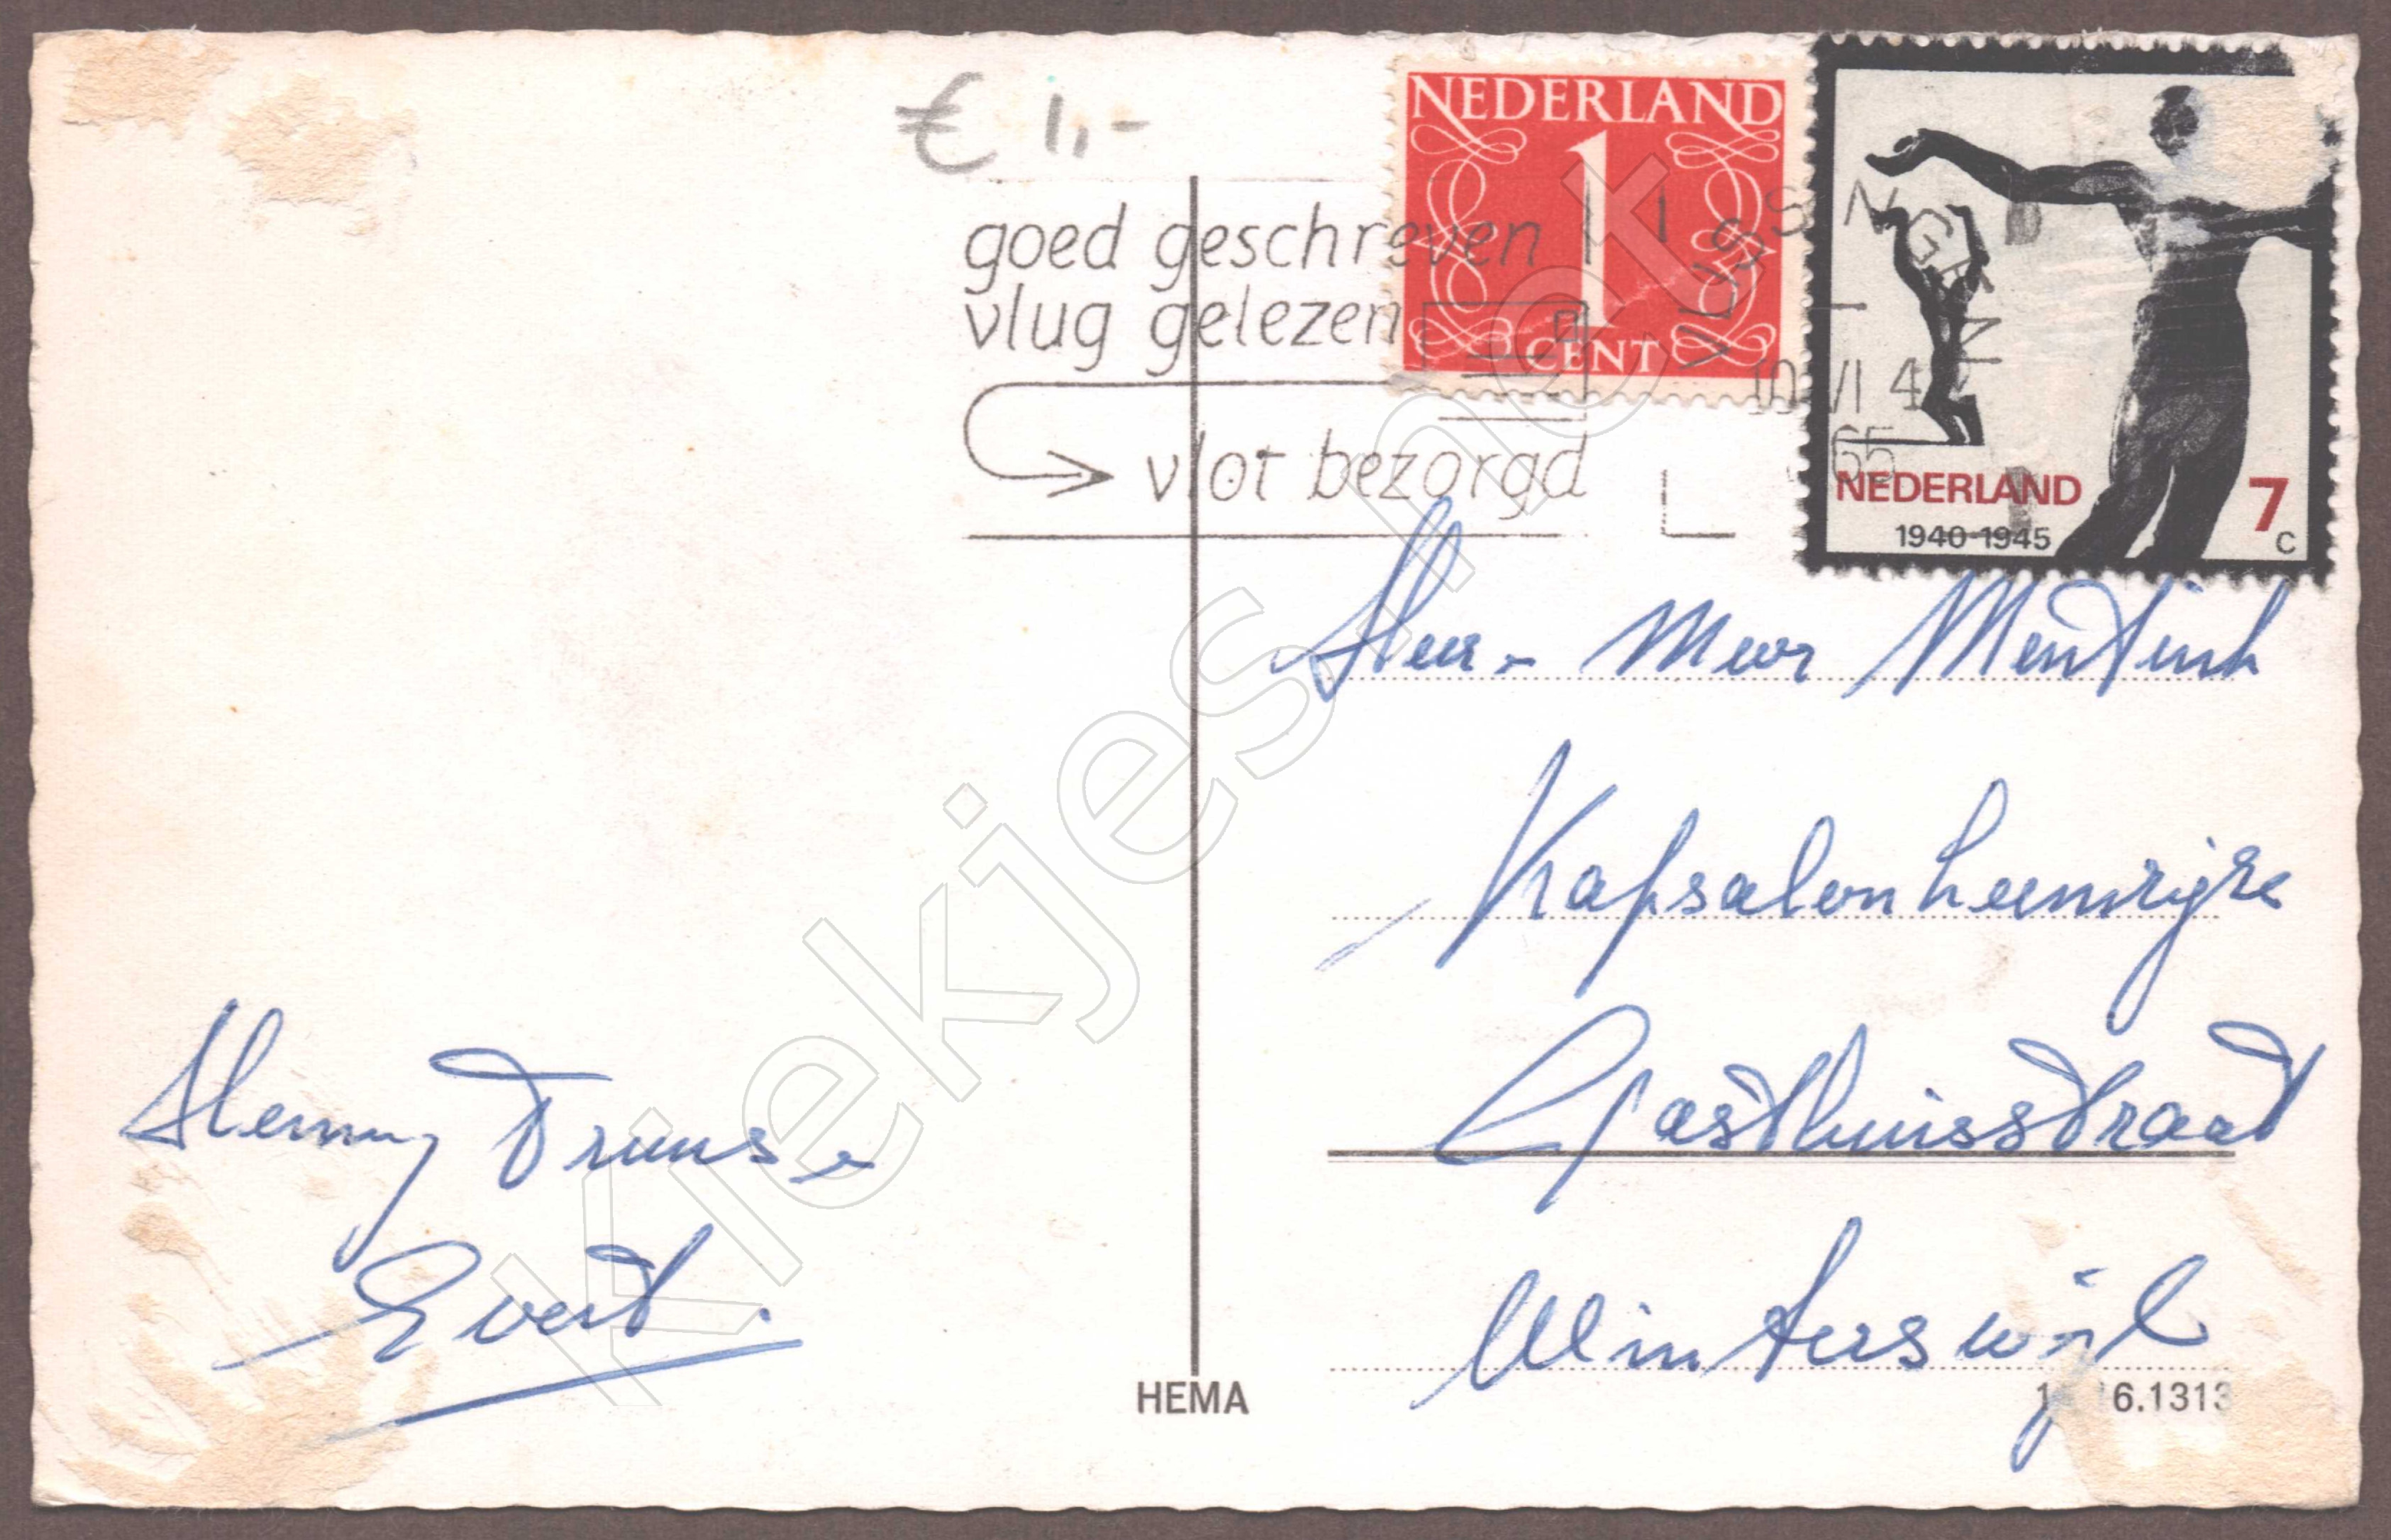 € 1,-
NEDERLAND
1
CENT
goed geschreven
vlug gelezen
vlot bezorgd
VLISSINGEN
10 VI 4
1965
NEDERLAND
1940-1945
7
c
Heer - Mevr Mentink
Kapsalon
Gasthuisstraat
Winterswijk
Henny Truus -
Evert.
HEMA
6.1313
Kiekjes.net